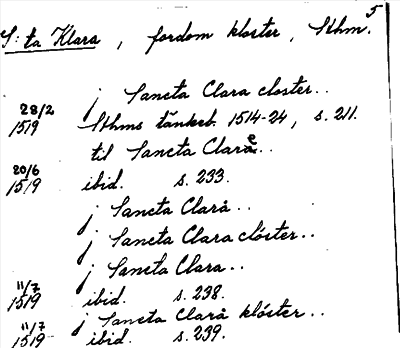 5
S:ta Klara, fordom kloster, Sthm.
j Sancta Clara closter..
28/2 1519 Sthms tänkeb. 1514-24, s. 211.
til Sancta Clara..
20/6 1519 ibid. s. 233.
j Sancta Clarå..
j Sancta Clara clóster..
j Sancta Clara..
11/7 1519 ibid. s. 238.
j Sancta Clarå klóster..
11/7 1519 ibid. s. 239.